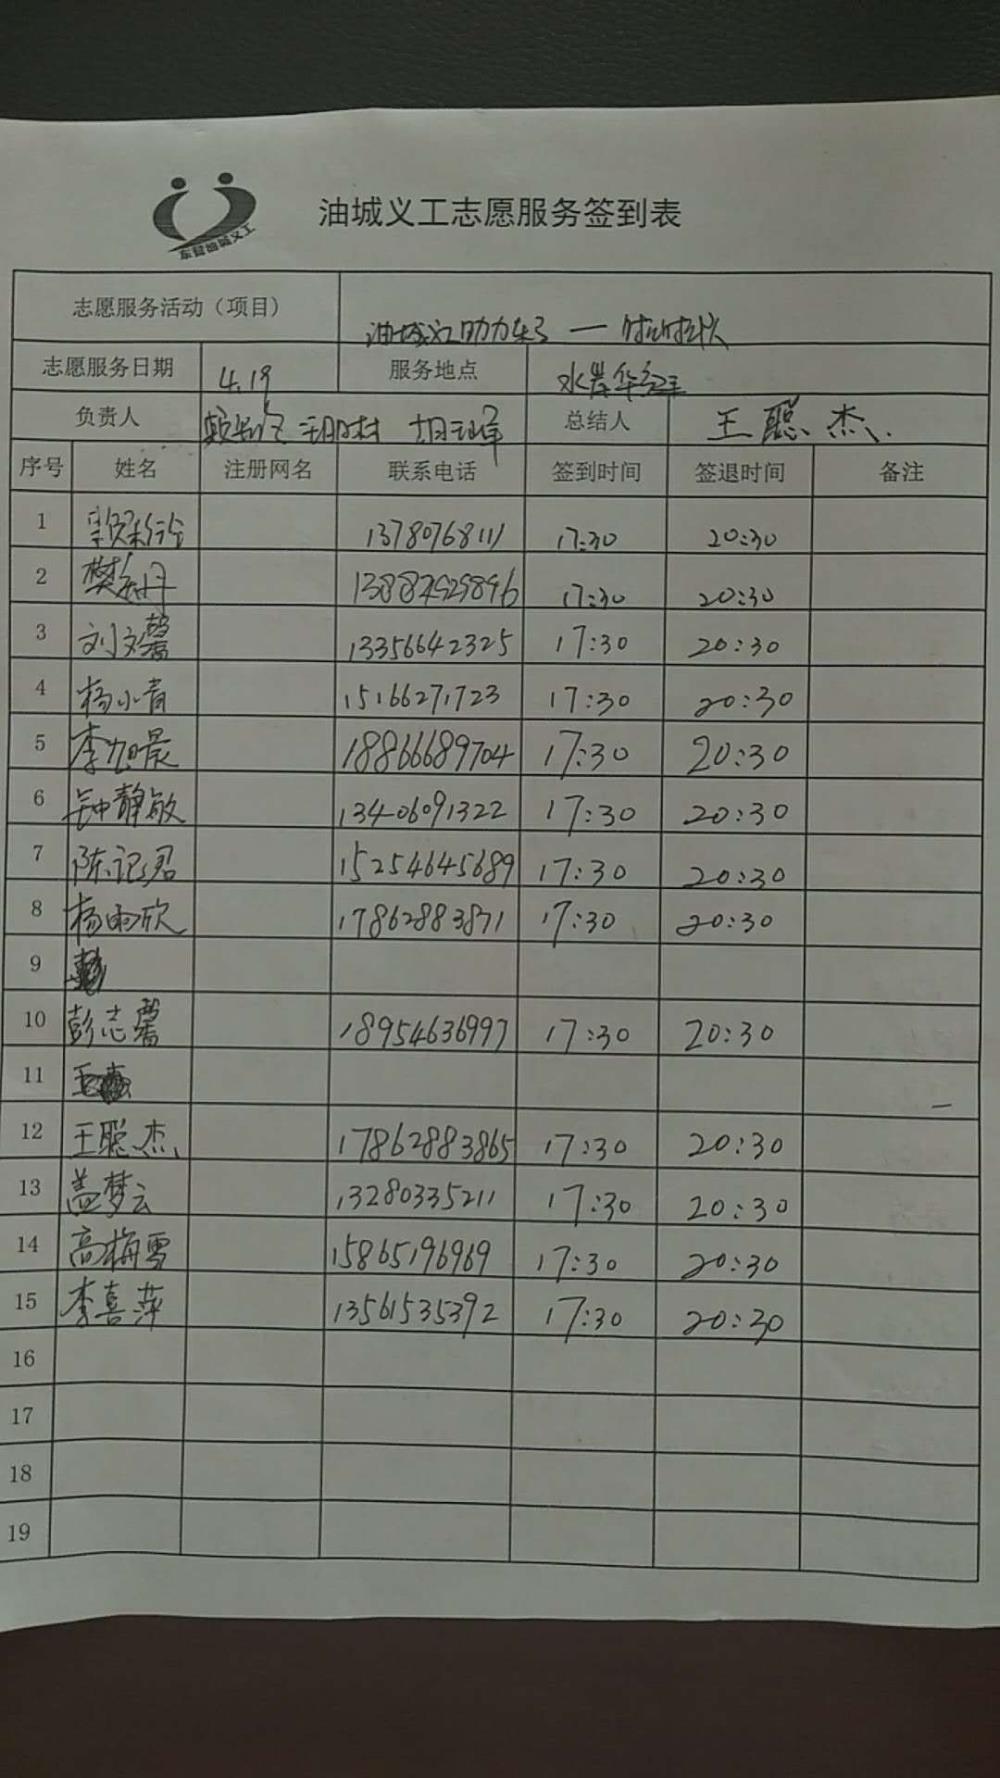 东营油城义工
油城义工志愿服务签到表
志愿服务活动（项目） 油城义工助力车子 一
志愿服务日期 4.19 服务地点 水岸华庭
负责人 总结人 王聪杰
序号 姓名 注册网名 联系电话 签到时间 签退时间 备注
1 13780768111 17:30 20:30
2 17:30 20:30
3 刘文馨 13356642325 17:30 20:30
4 杨小青 15166271723 17:30 20:30
5 李旭晨 18866689704 17:30 20:30
6 钟静敏 13406091322 17:30 20:30
7 陈记君 15254645689 17:30 20:30
8 杨雨欣 17862883871 17:30 20:30
9
10 彭志馨 18954636997 17:30 20:30
11 王
12 王聪杰 17862883865 17:30 20:30
13 盖梦云 13280335211 17:30 20:30
14 高梅雪 15865196969 17:30 20:30
15 李喜萍 13561535392 17:30 20:30
16
17
18
19